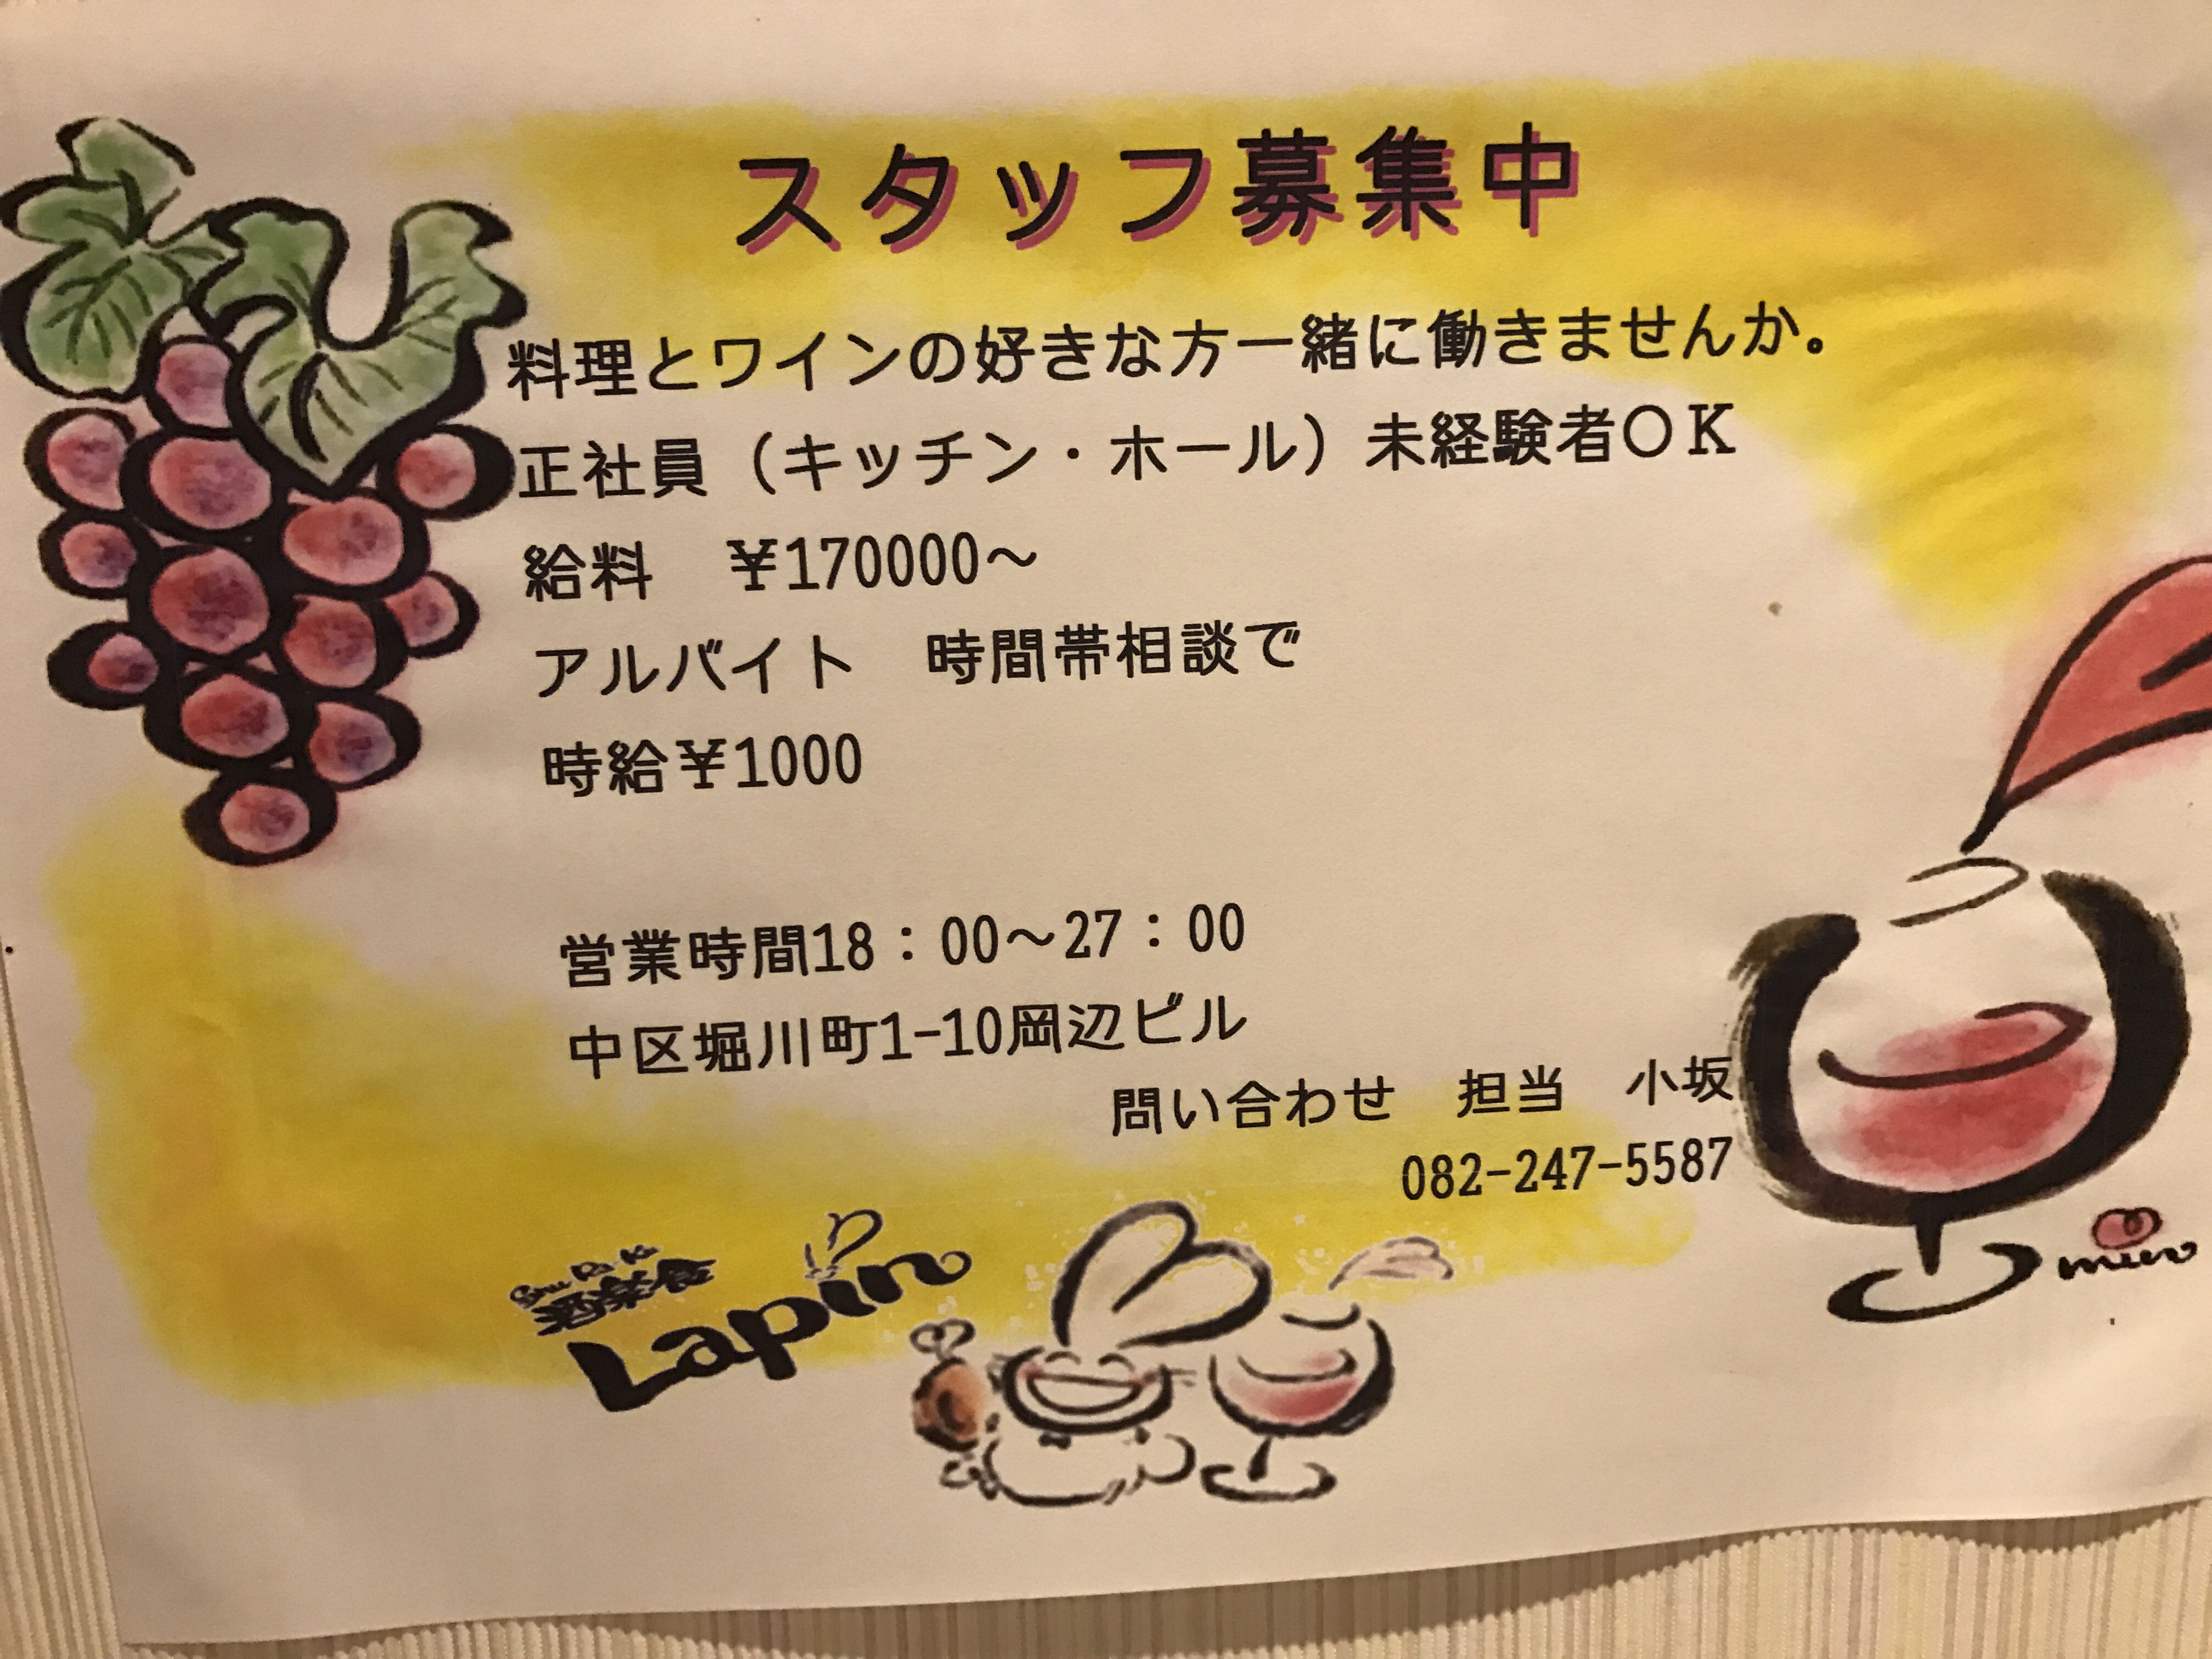 スタッフ募集中
料理とワインの好きな方一緒に働きませんか。
正社員（キッチン・ホール）未経験者〇K
給料　￥170000～
アルバイト　時間帯相談で
時給￥1000
営業時間18：00～27：00
中区堀川町1-10岡辺ビル
問い合わせ　担当　小坂
082-247-5587
Shu Ra Ku
酒楽食
Lapin